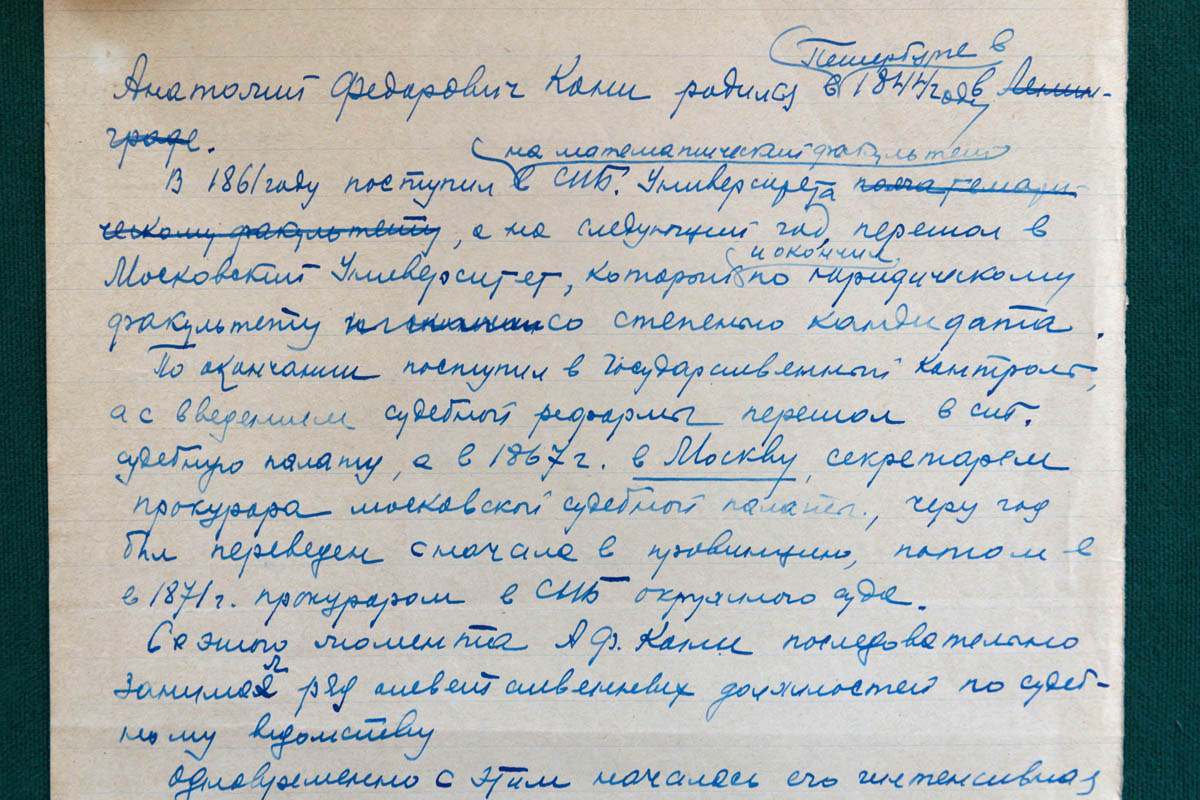 Петербурге в
Анатолий Федорович Кони родился в 1844 году в Ленин-
граде.
на математический факультет
В 1861 году поступил в СПБ. Университета математи-
ческому факультету, а на следующий год перешол в
и окончил
Московский Университет, который по юридическому
факультету со степенью кандидата.
По окончании поступил в Государственный контроль,
а с введением судебной реформы перешол в СПБ.
судебную палату, а в 1867 г. в Москву, секретарем
прокурора московской судебной палаты., черу год
был переведен сначала в провинцию, потом в
в 1871 г. прокурором в СПБ окружного суда.
С этого момента А.Ф. Кони последовательно
занимал ряд ответственных должностей по судеб-
ному ведомству
Одновременно с этим началась его интенсивная